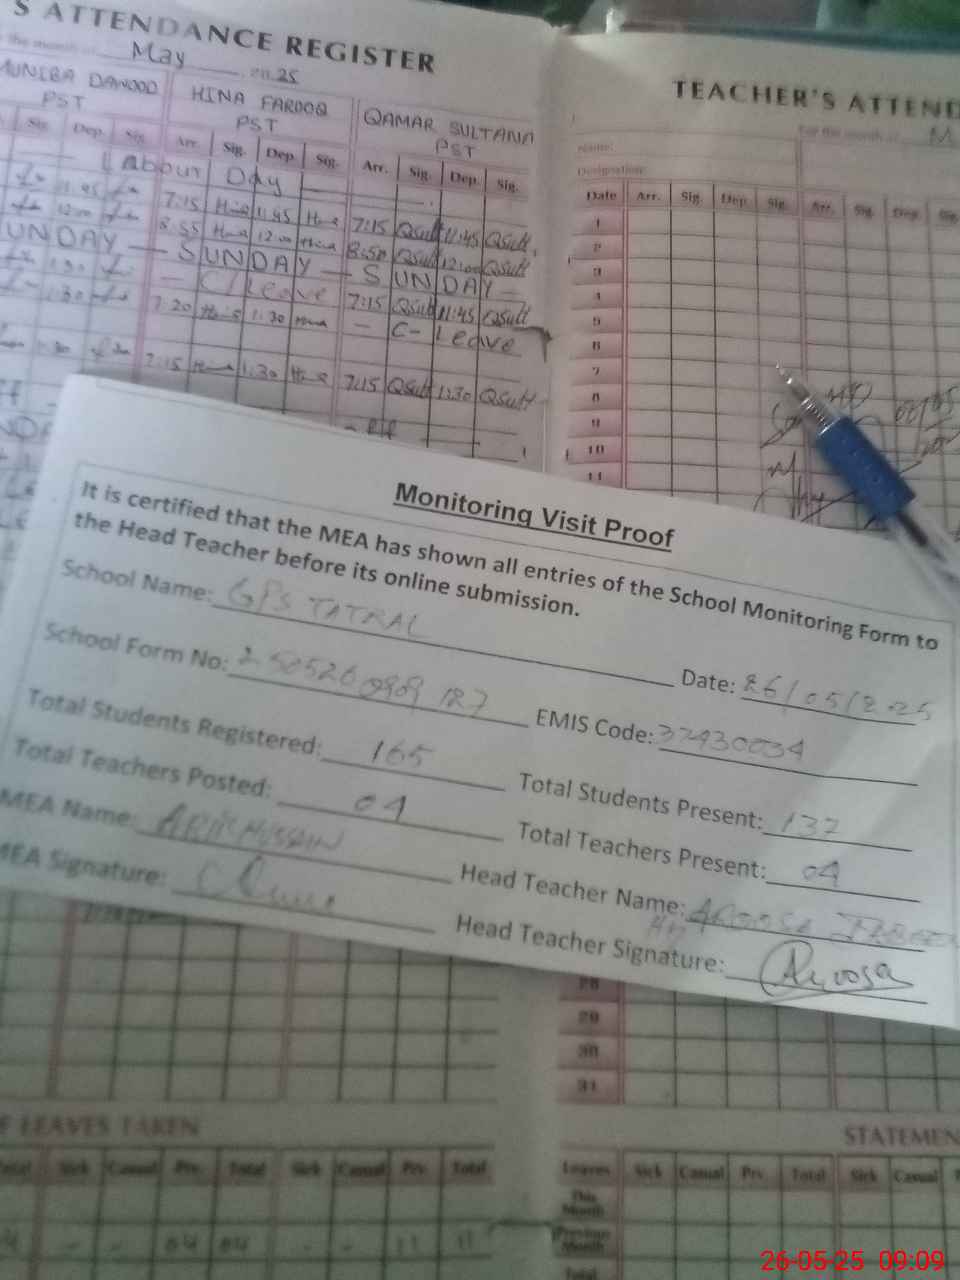 S ATTENDANCE REGISTER
the month May 2025
MUNIBA DAWOOD HINA FAROOQ QAMAR SULTANA
PST PST PST
Sig. Dep. Sig. Arr. Sig. Dep. Sig. Arr. Sig. Dep. Sig.
Labour Day
11:45 7:15 Hina 11:45 Hina 7:15 QSult 11:45 QSult
12:00 8:55 Hina 12:00 Hina 8:50 QSult 12:00 QSult
UNDAY — SUNDAY — SUNDAY
1:30 — C/Leave 7:15 QSult 11:45 QSult
1:30 7:20 Hina 1:30 Hina — C- Leave
1:30 7:15 Hina 1:30 Hina 7:15 QSult 1:30 QSult
TEACHER'S ATTEND
For the month of M
Name:
Designation:
Date Arr. Sig. Dep. Sig. Arr. Sig. Dep. Sig.
1
2
3
4
5
6
7
8
9
10
11
Monitoring Visit Proof
It is certified that the MEA has shown all entries of the School Monitoring Form to
the Head Teacher before its online submission.
School Name: GPS TATRAL
Date: 26/05/2025
School Form No: 2505260909127
EMIS Code: 37430034
Total Students Registered: 165
Total Students Present: 137
Total Teachers Posted: 04
Total Teachers Present: 04
MEA Name: HUSSAIN
Head Teacher Name: AROOSA
MEA Signature:
Head Teacher Signature: Aroosa
28
29
30
31
F LEAVES TAKEN
STATEMEN
Total Sick Casual Prv. Total Sick Casual Prv. Total
Leaves Sick Casual Prv. Total Sick Casual
This Month
Previous Month
04 - - 04 04 - - 11 11
Total
26-05-25 09:09